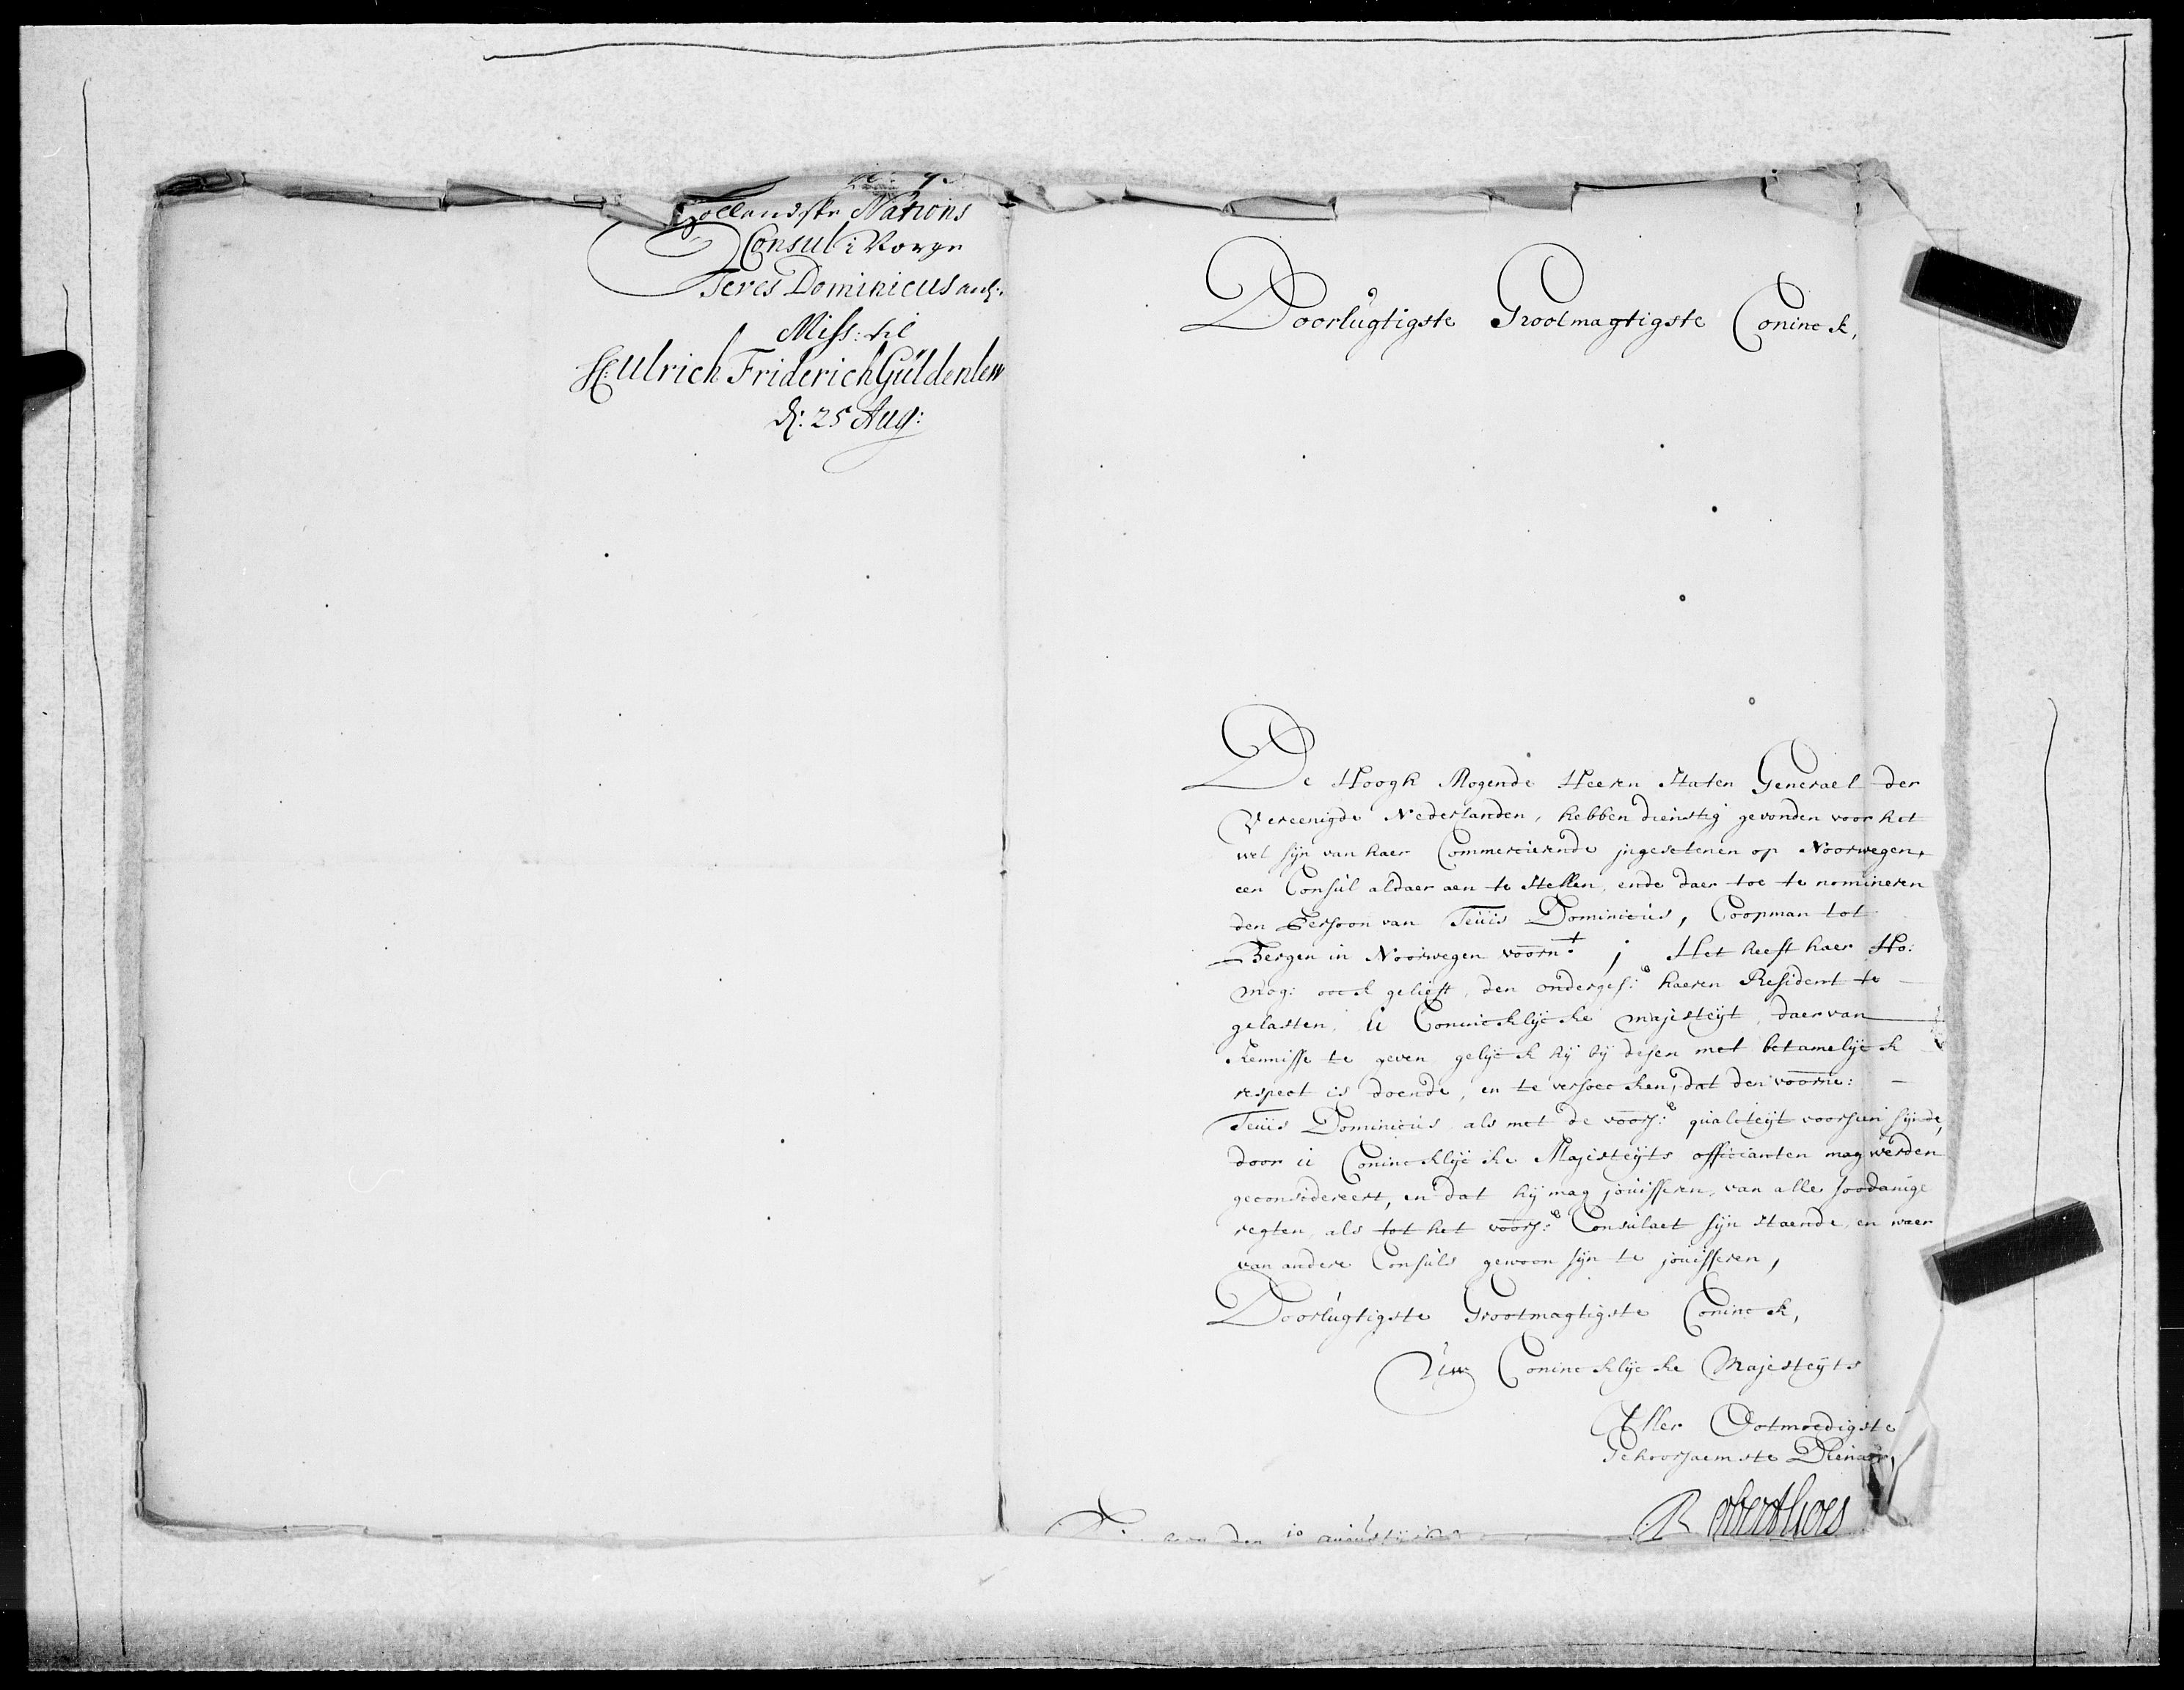 Hollandske Nations
Consul i Norge
Teves Dominicus anl:
Miss: til
H: Ulrich Friderich Güldenlew
d: 25 Aug:
Doorlúgtigste Grootmagtigste Coninck,
De Hoogh Mogende Heeren Staten Generael der
Vereenigde Nederlanden, hebben dienstig gevonden voor het
wel sijn van haer Commercierende jngesetenen op Noorwegen,
een Consúl aldaer aen te stellen, ende daer toe te nomineren
den Persoon van Teúis Dominicús, Coopman tot
Bergen in Noorwegen voorn:t; Het heeft haer Ho:
Mog: oock gelieft, den onderges:e haeren Resident te
gelasten, ú Conincklijcke Majesteijt, daer van
Kennisse te geven gelijck hij bij desen met betamelijck
respect is doende, en te versoecken, dat den voorne:
Teúis Dominicús als met de voors:e qualiteijt voorsien sijnde,
door ú Conincklijcke Majesteijts officianten mag werden
geconsidereert, en dat hij mag joúisseren, van alle soodanige
regten, als tot het voors:e Consúlaet sijn staende, en waer
van andere Consúls gewoon sijn te joúisseren,
Doorlúgtigste Grootmagtigste Coninck,
Úw Conincklijcke Majesteijts
Aller Ootmoedigste
Gehoorsaemste Dienaer,
Robert Goes
den 10 aúgústij